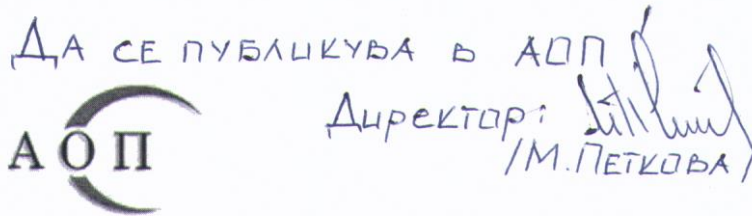 ДА СЕ ПУБЛИКУВА В АОП
Директор:
/М. ПЕТКОВА/
АОП